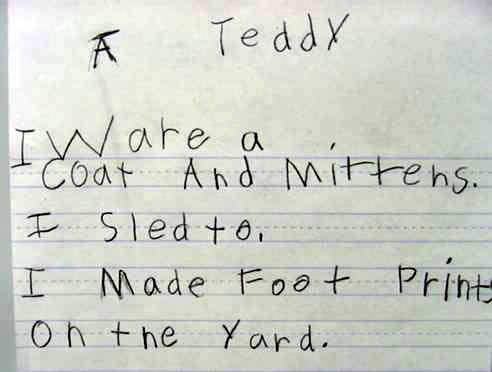 A Teddy
I Ware a
Coat And Mittens.
I Sled to.
I Made Foot Prints
On the Yard.